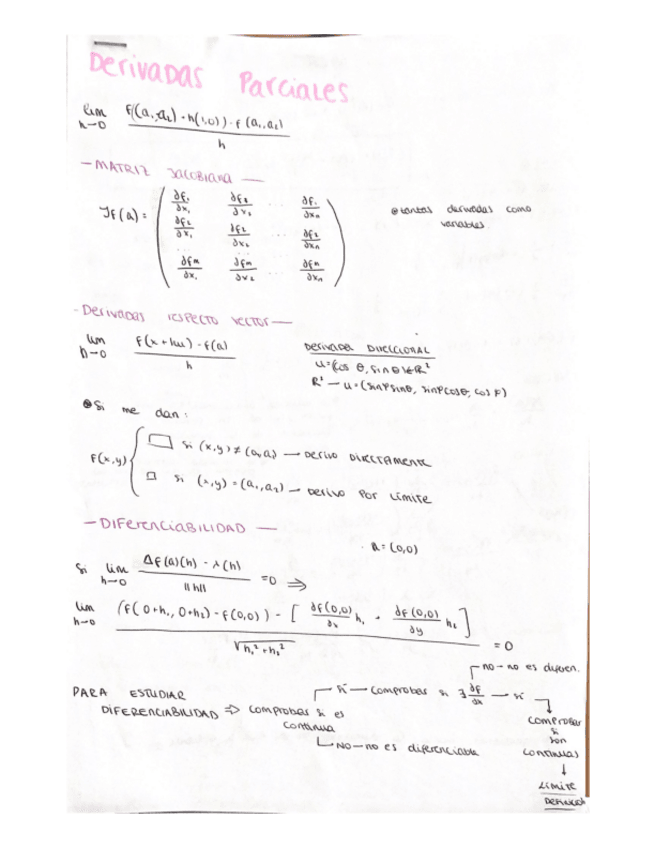 Derivadas Parciales
lim h→0 f((a₁,a₂) + h(1,0)) - f(a₁,a₂) / h
- MATRIZ Jacobiana —
Jf(a) = ( ∂f₁/∂x₁ ∂f₁/∂x₂ ... ∂f₁/∂xn
∂f₂/∂x₁ ∂f₂/∂x₂ ... ∂f₂/∂xn
... ...
∂fm/∂x₁ ∂fm/∂x₂ ... ∂fm/∂xn )
tantas derivadas como
variables.
- Derivadas respecto vector —
lim h→0 f(x + hu) - f(a) / h
Derivada Direccional
u = (cos θ, sin θ) ∈ R²
R² — u = (sinφ sinθ, sinφ cosθ, cos φ)
Si me dan:
f(x,y) { □ si (x,y) ≠ (a₁,a₂) — Derivo DIRECTAMENTE
□ si (x,y) = (a₁,a₂) — Derivo por Límite
- DIFERENCIABILIDAD —
a = (0,0)
Si lim h→0 Δf(a)(h) - λ(h) / ||h|| = 0 ⇒
lim h→0 (f(0+h₁, 0+h₂) - f(0,0)) - [ ∂f(0,0)/∂x h₁ + ∂f(0,0)/∂y h₂ ] / √h₁² + h₂² = 0
no — no es diferen.
PARA ESTUDIAR
DIFERENCIABILIDAD ⇒ comprobar si es
continua
sí — comprobar si ∃ ∂f/∂x — sí
NO — no es diferenciable
comprobar
si
son
continuas
↓
Límite